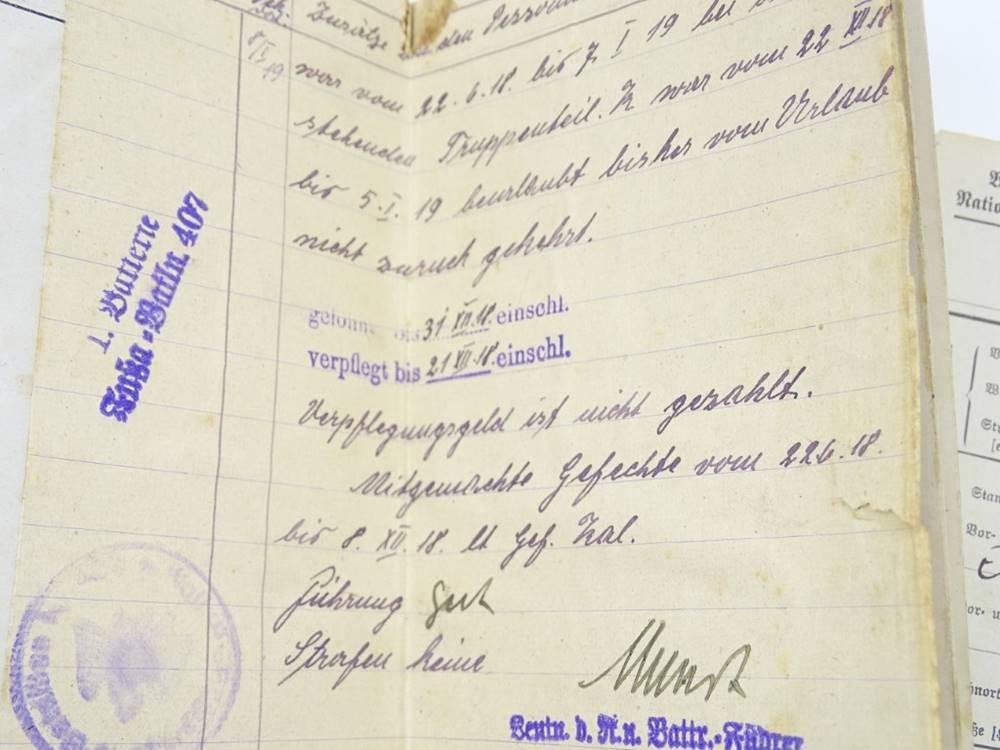 Zusätze zu den Personal
8/I 19
war vom 22.6.18. bis 7. I 19 bei
stehenden Truppenteil. K war vom 22 XII 18
bis 5.I. 19 beurlaubt bisher vom Urlaub
nicht zurück gekehrt.
gelöhnt bis 31 XII.18. einschl.
verpflegt bis 21 XII.18. einschl.
Verpflegungsgeld ist nicht gezahlt.
Mitgemachte Gefechte vom 22.6.18.
bis 8. XII. 18. lt Gef. Kal.
Führung Gut
Strafen keine
Leutn. d. R. u. Battr.-Führer
1. Batterie
Fußa-Batln. 407
Natio
Stan
Vor-